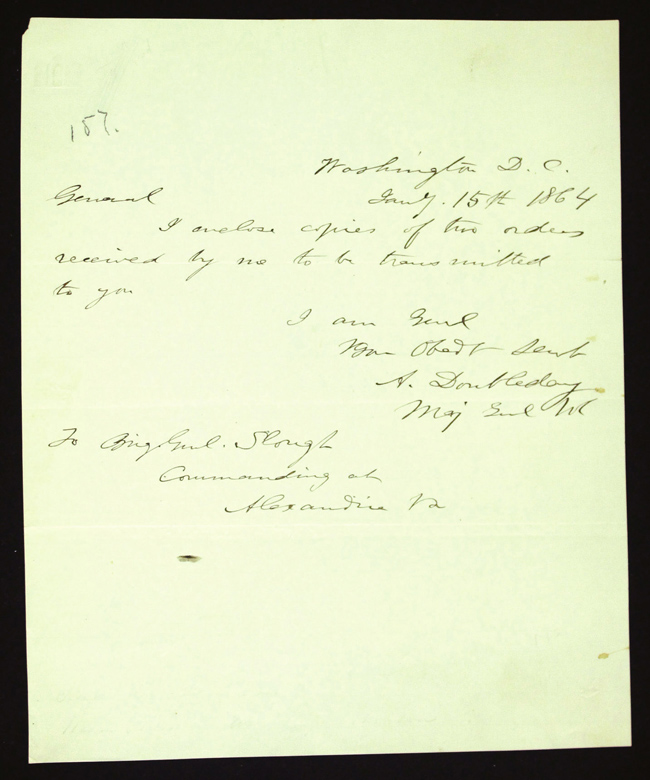 157.
Washington D. C.
General Jany. 15th 1864
I enclose copies of two orders
received by me to be transmitted
to you
I am Genl
Your Obedt Servt
A. Doubleday
Maj Genl Vol
To Brig Genl. Slough
Commanding at
Alexandria Va